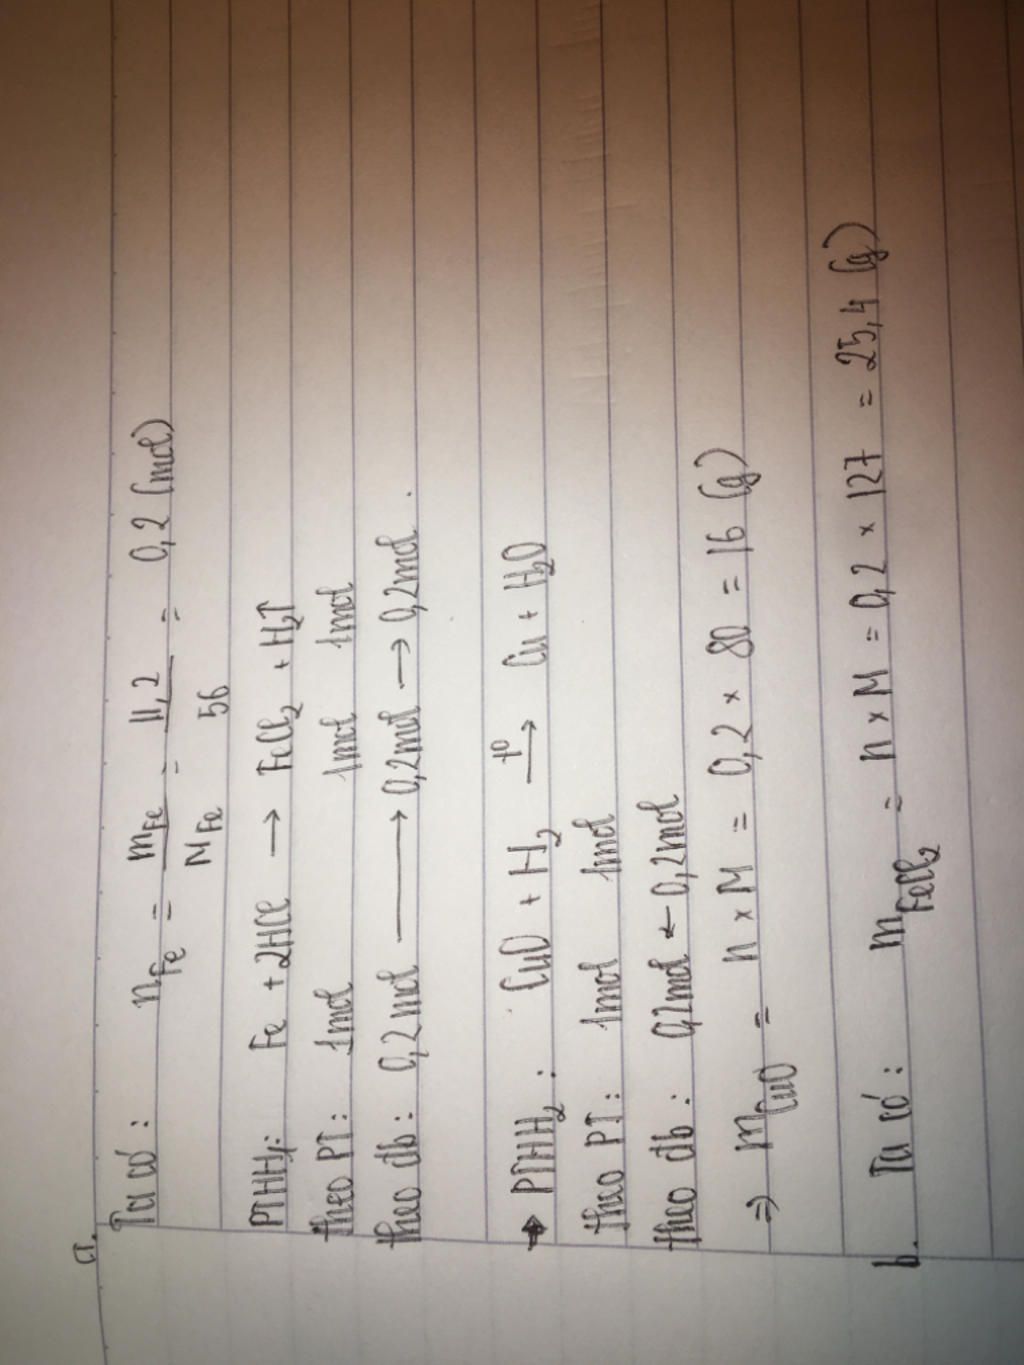 a.
Ta có: nFe = mFe / MFe = 11,2 / 56 = 0,2 (mol)
PTHH1: Fe + 2HCl → FeCl2 + H2↑
theo PT: 1mol 1mol 1mol
theo đb: 0,2 mol → 0,2mol → 0,2mol.
→ PTHH2: CuO + H2 t°→ Cu + H2O
theo PT: 1mol 1mol
theo đb: 0,2mol ← 0,2mol
⇒ mCuO = n × M = 0,2 × 80 = 16 (g)
b. Ta có: mFeCl2 = n × M = 0,2 × 127 = 25,4 (g)